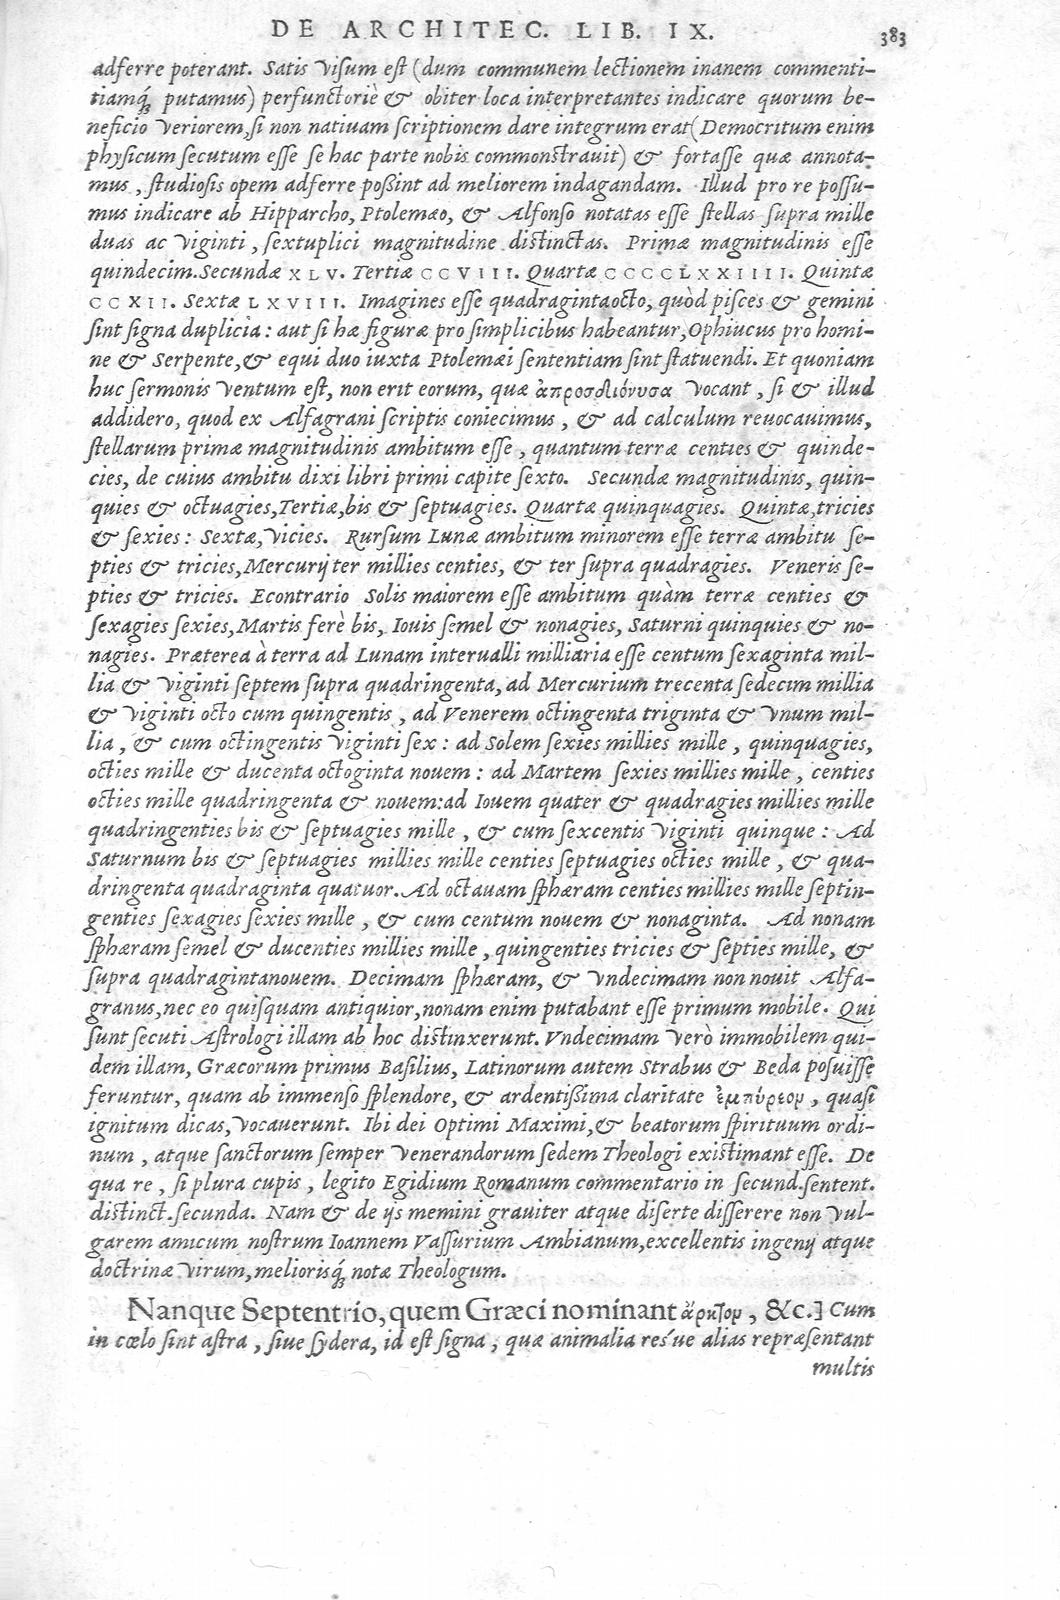 DE ARCHITEC. LIB. IX.
383
adferre poterant. Satis visum est (dum communem lectionem inanem commenti-
tiamq́; putamus) perfunctoriè & obiter loca interpretantes indicare quorum be-
neficio veriorem, si non natiuam scriptionem dare integrum erat (Democritum enim
physicum secutum esse se hac parte nobis commonstrauit) & fortasse quæ annota-
mus, studiosis opem adferre poßint ad meliorem indagandam. Illud pro re possu-
mus indicare ab Hipparcho, Ptolemæo, & Alfonso notatas esse stellas supra mille
duas ac viginti, sextuplici magnitudine distinctas. Primæ magnitudinis esse
quindecim. Secundæ XLV. Tertiæ CCVIII. Quartæ CCCCLXXIIII. Quintæ
CCXII. Sextæ LXVIII. Imagines esse quadragintaocto, quòd pisces & gemini
sint signa duplicia: aut si hæ figuræ pro simplicibus habeantur, Ophiucus pro homi-
ne & Serpente, & equi duo iuxta Ptolemæi sententiam sint statuendi. Et quoniam
huc sermonis ventum est, non erit eorum, quæ ἀπροσδιόνυσα vocant, si & illud
addidero, quod ex Alfagrani scriptis coniecimus, & ad calculum reuocauimus,
stellarum primæ magnitudinis ambitum esse, quantum terræ centies & quinde-
cies, de cuius ambitu dixi libri primi capite sexto. Secundæ magnitudinis, quin-
quies & octuagies, Tertiæ, bis & septuagies. Quartæ quinquagies. Quintæ, tricies
& sexies: Sextæ, vicies. Rursum Lunæ ambitum minorem esse terræ ambitu se-
pties & tricies, Mercurij ter millies centies, & ter supra quadragies. Veneris se-
pties & tricies. Econtrario Solis maiorem esse ambitum quàm terræ centies &
sexagies sexies, Martis ferè bis, Iouis semel & nonagies, Saturni quinquies & no-
nagies. Præterea à terra ad Lunam interualli milliaria esse centum sexaginta mil-
lia & viginti septem supra quadringenta, ad Mercurium trecenta sedecim millia
& viginti octo cum quingentis, ad Venerem octingenta triginta & vnum mil-
lia, & cum octingentis viginti sex: ad Solem sexies millies mille, quinquagies,
octies mille & ducenta octoginta nouem: ad Martem sexies millies mille, centies
octies mille quadringenta & nouem: ad Iouem quater & quadragies millies mille
quadringenties bis & septuagies mille, & cum sexcentis viginti quinque: Ad
Saturnum bis & septuagies millies mille centies septuagies octies mille, & qua-
dringenta quadraginta quatuor. Ad octauam sphæram centies millies mille septin-
genties sexagies sexies mille, & cum centum nouem & nonaginta. Ad nonam
sphæram semel & ducenties millies mille, quingenties tricies & septies mille, &
supra quadragintanouem. Decimam sphæram, & vndecimam non nouit Alfa-
granus, nec eo quisquam antiquior, nonam enim putabant esse primum mobile. Qui
sunt secuti Astrologi illam ab hoc distinxerunt. Vndecimam verò immobilem qui-
dem illam, Græcorum primus Basilius, Latinorum autem Strabus & Beda posuisse
feruntur, quam ab immenso splendore, & ardentißima claritate ἐμπύρεον, quasi
ignitum dicas, vocauerunt. Ibi dei Optimi Maximi, & beatorum spirituum ordi-
num, atque sanctorum semper venerandorum sedem Theologi existimant esse. De
qua re, si plura cupis, legito Egidium Romanum commentario in secund. sentent.
distinct. secunda. Nam & de ijs memini grauiter atque diserte disserere non vul-
garem amicum nostrum Ioannem Vassurium Ambianum, excellentis ingenij atque
doctrinæ virum, meliorisq́; notæ Theologum.
Nanque Septentrio, quem Græci nominant ἄρκτον, &c.] Cum
in cœlo sint astra, siue sydera, id est signa, quæ animalia res'ue alias repræsentant
multis